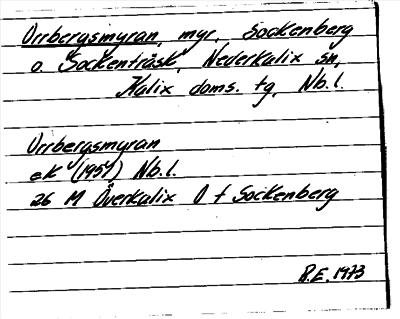 Orrbergsmyran, myr, Sockenberg
o. Sockenträsk, Nederkalix sn,
Kalix doms. tg, Nb.l.
Orrbergsmyran
ek (1957) Nb.l.
26 M Överkalix O f Sockenberg
R.E. 1973